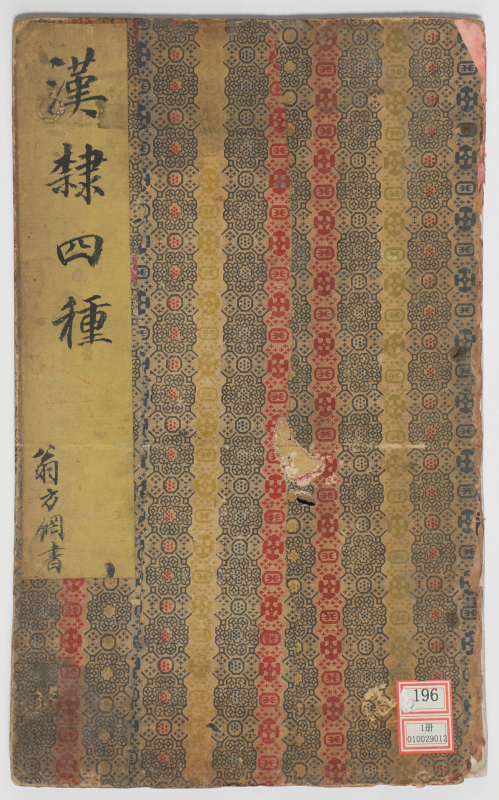 漢隸四種
翁方綱書
196
1册
010029012